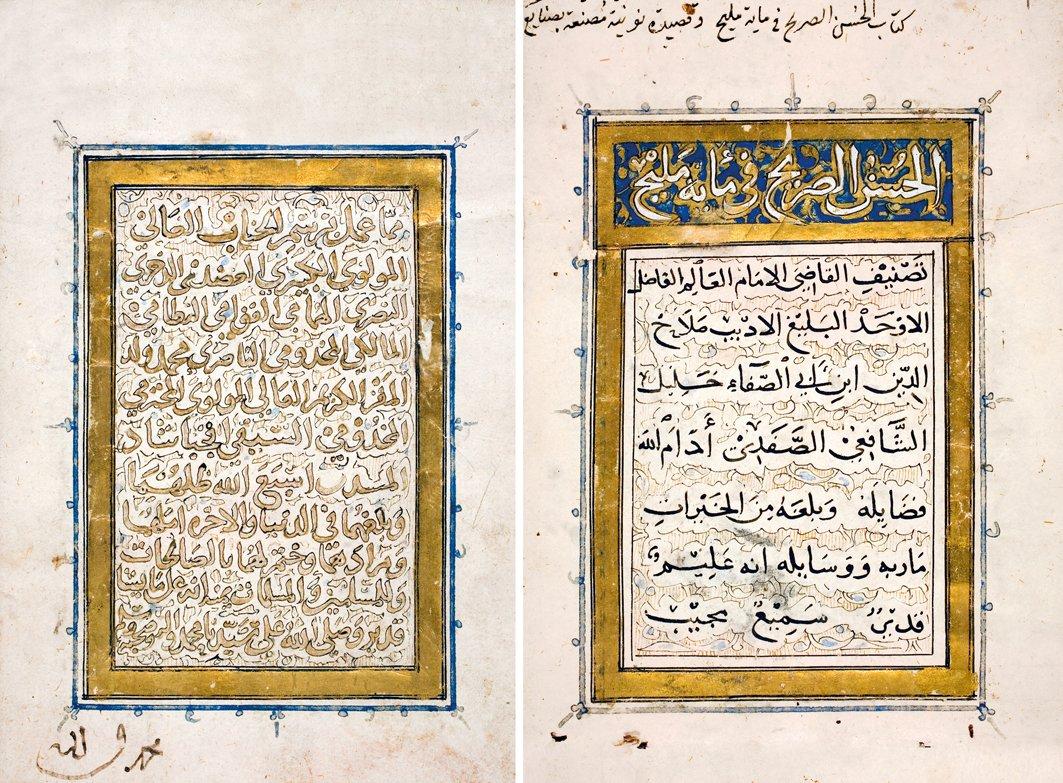 كتاب الحسن الصريح في ماية مليح وقصيدة نونية
الحُسْنُ الصَّرِيح في مائة مَليح
تَصْنِيفِ القاضي الامام العَالِم الفاضل
الاوْحَد البَليغ الاديب صَلاح
الدِّين ابن أبي الصَّفاء خَليل
الشَّافِعيْ الصَّفَديْ أدَامَ الله
فضَايله وبلغه مِنَ الخيرات
ماربه ووسايله انه عَليم
قدير سَمِيعٌ مجيب
مما عمل برسم الجناب العالي
المولوي الكبيري العضدي الذخري
النصري الهمامي القوامي النظامي
المالكي المخدومي الناصري محمد ولد
المقر الكريم العالي المولوي
المخدومي السيفي اقبغا شاد
اسبغ الله ظلهما
وبلغهما في الدنيا والاخرة املهما
وختم لهما بالصالحات
قدير وصلى الله على سيدنا محمد